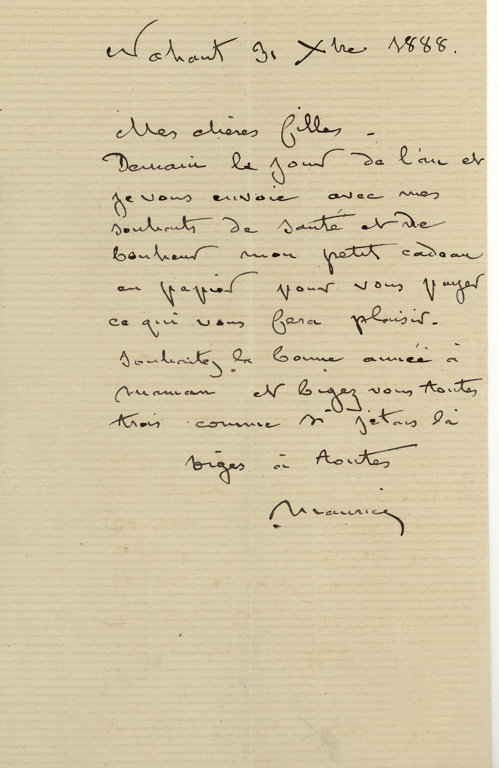 Nohant 31 Xbre 1888.
Mes chères filles -
Demain le jour de l'an et
je vous envoie avec mes
souhaits de santé et de
bonheur mon petit cadeau
en papier pour vous payer
ce qui vous fera plaisir.
Souhaitez la bonne année à
maman et bigez vous toutes
trois comme si j'étais là
biges à toutes
Maurice